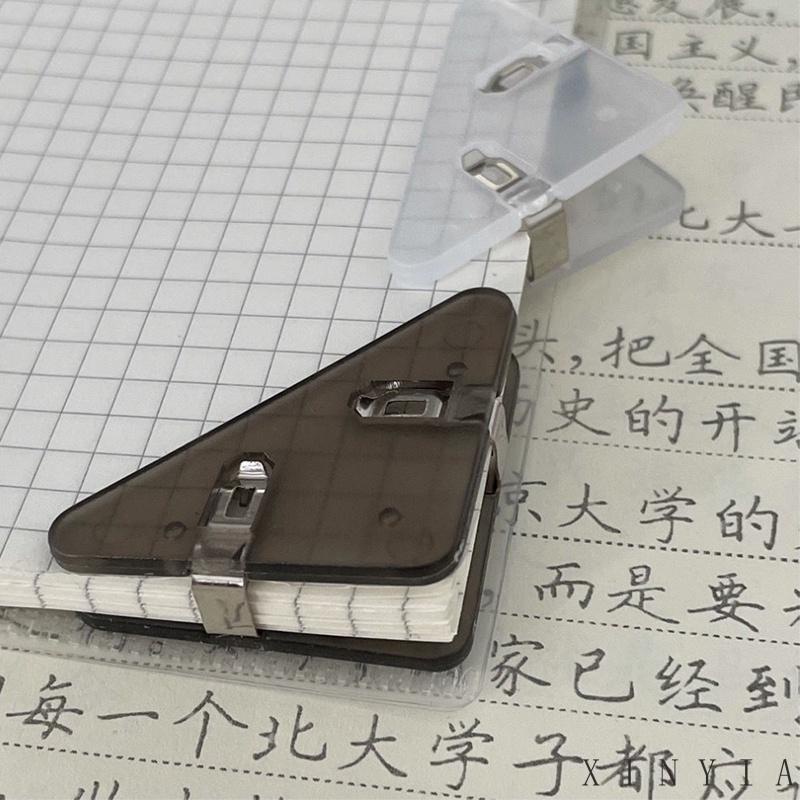 发展,
国主义,
唤醒民
北大
头,把全国
历史的开端
京大学的
,而是要
家已经到
每一个北大学子都应
XINYIA